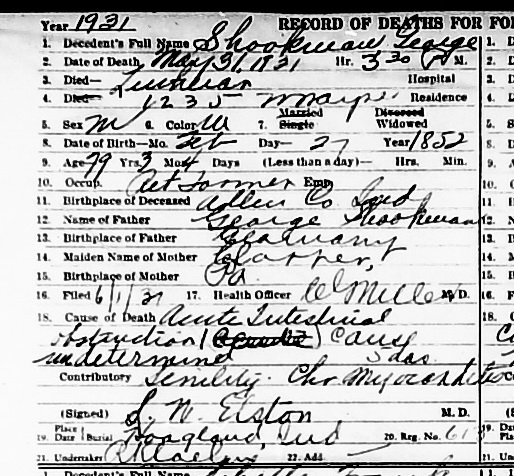 Year 1931 RECORD OF DEATHS FOR FO
1. Decedent's Full Name Shookman George
2. Date of Death May 31, 1931 Hr. 3 30 P M.
3. Died— Lutheran Hospital
4. Died— 1235 W Wayne Residence
5. Sex M 6. Color W 7. Married Single Divorced Widowed
8. Date of Birth—Mo. Feb Day— 27 Year 1852
9. Age 79 Yrs. 3 Mo. 4 Days (Less than a day)— Hrs. Min.
10. Occup. Ret Farmer Emp.
11. Birthplace of Deceased Allen Co Ind
12. Name of Father George Shookman
13. Birthplace of Father Germany
14. Maiden Name of Mother
15. Birthplace of Mother Pa.
16. Filed 6/1/31 17. Health Officer Miller M.D.
18. Cause of Death Acute Intestinal
obstruction cause
undetermined 3 das.
Contributory Senility. Chr Myocarditis
(Signed) S. W. Elston M. D.
19. Place Date Burial Hoagland, Ind 20. Reg. No. 613
21. Undertaker 22. Add.
1. Decedent's Full Name